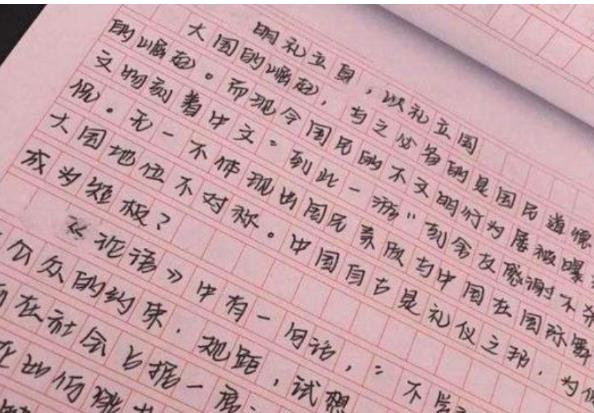 明礼立身，以礼立国
大国的崛起，与之必备的是国民道德
的崛起。而现今国民的不文明行为屡被曝
文物刻着中文“到此一游”刻
侃。无一不体现出国民素质与中国在国际
大国地位不对称。中国自古是礼仪之邦，为何
成为短板？
《论语》中有一句话，“不学
公众的约束，规距，试想
在社会占据一席